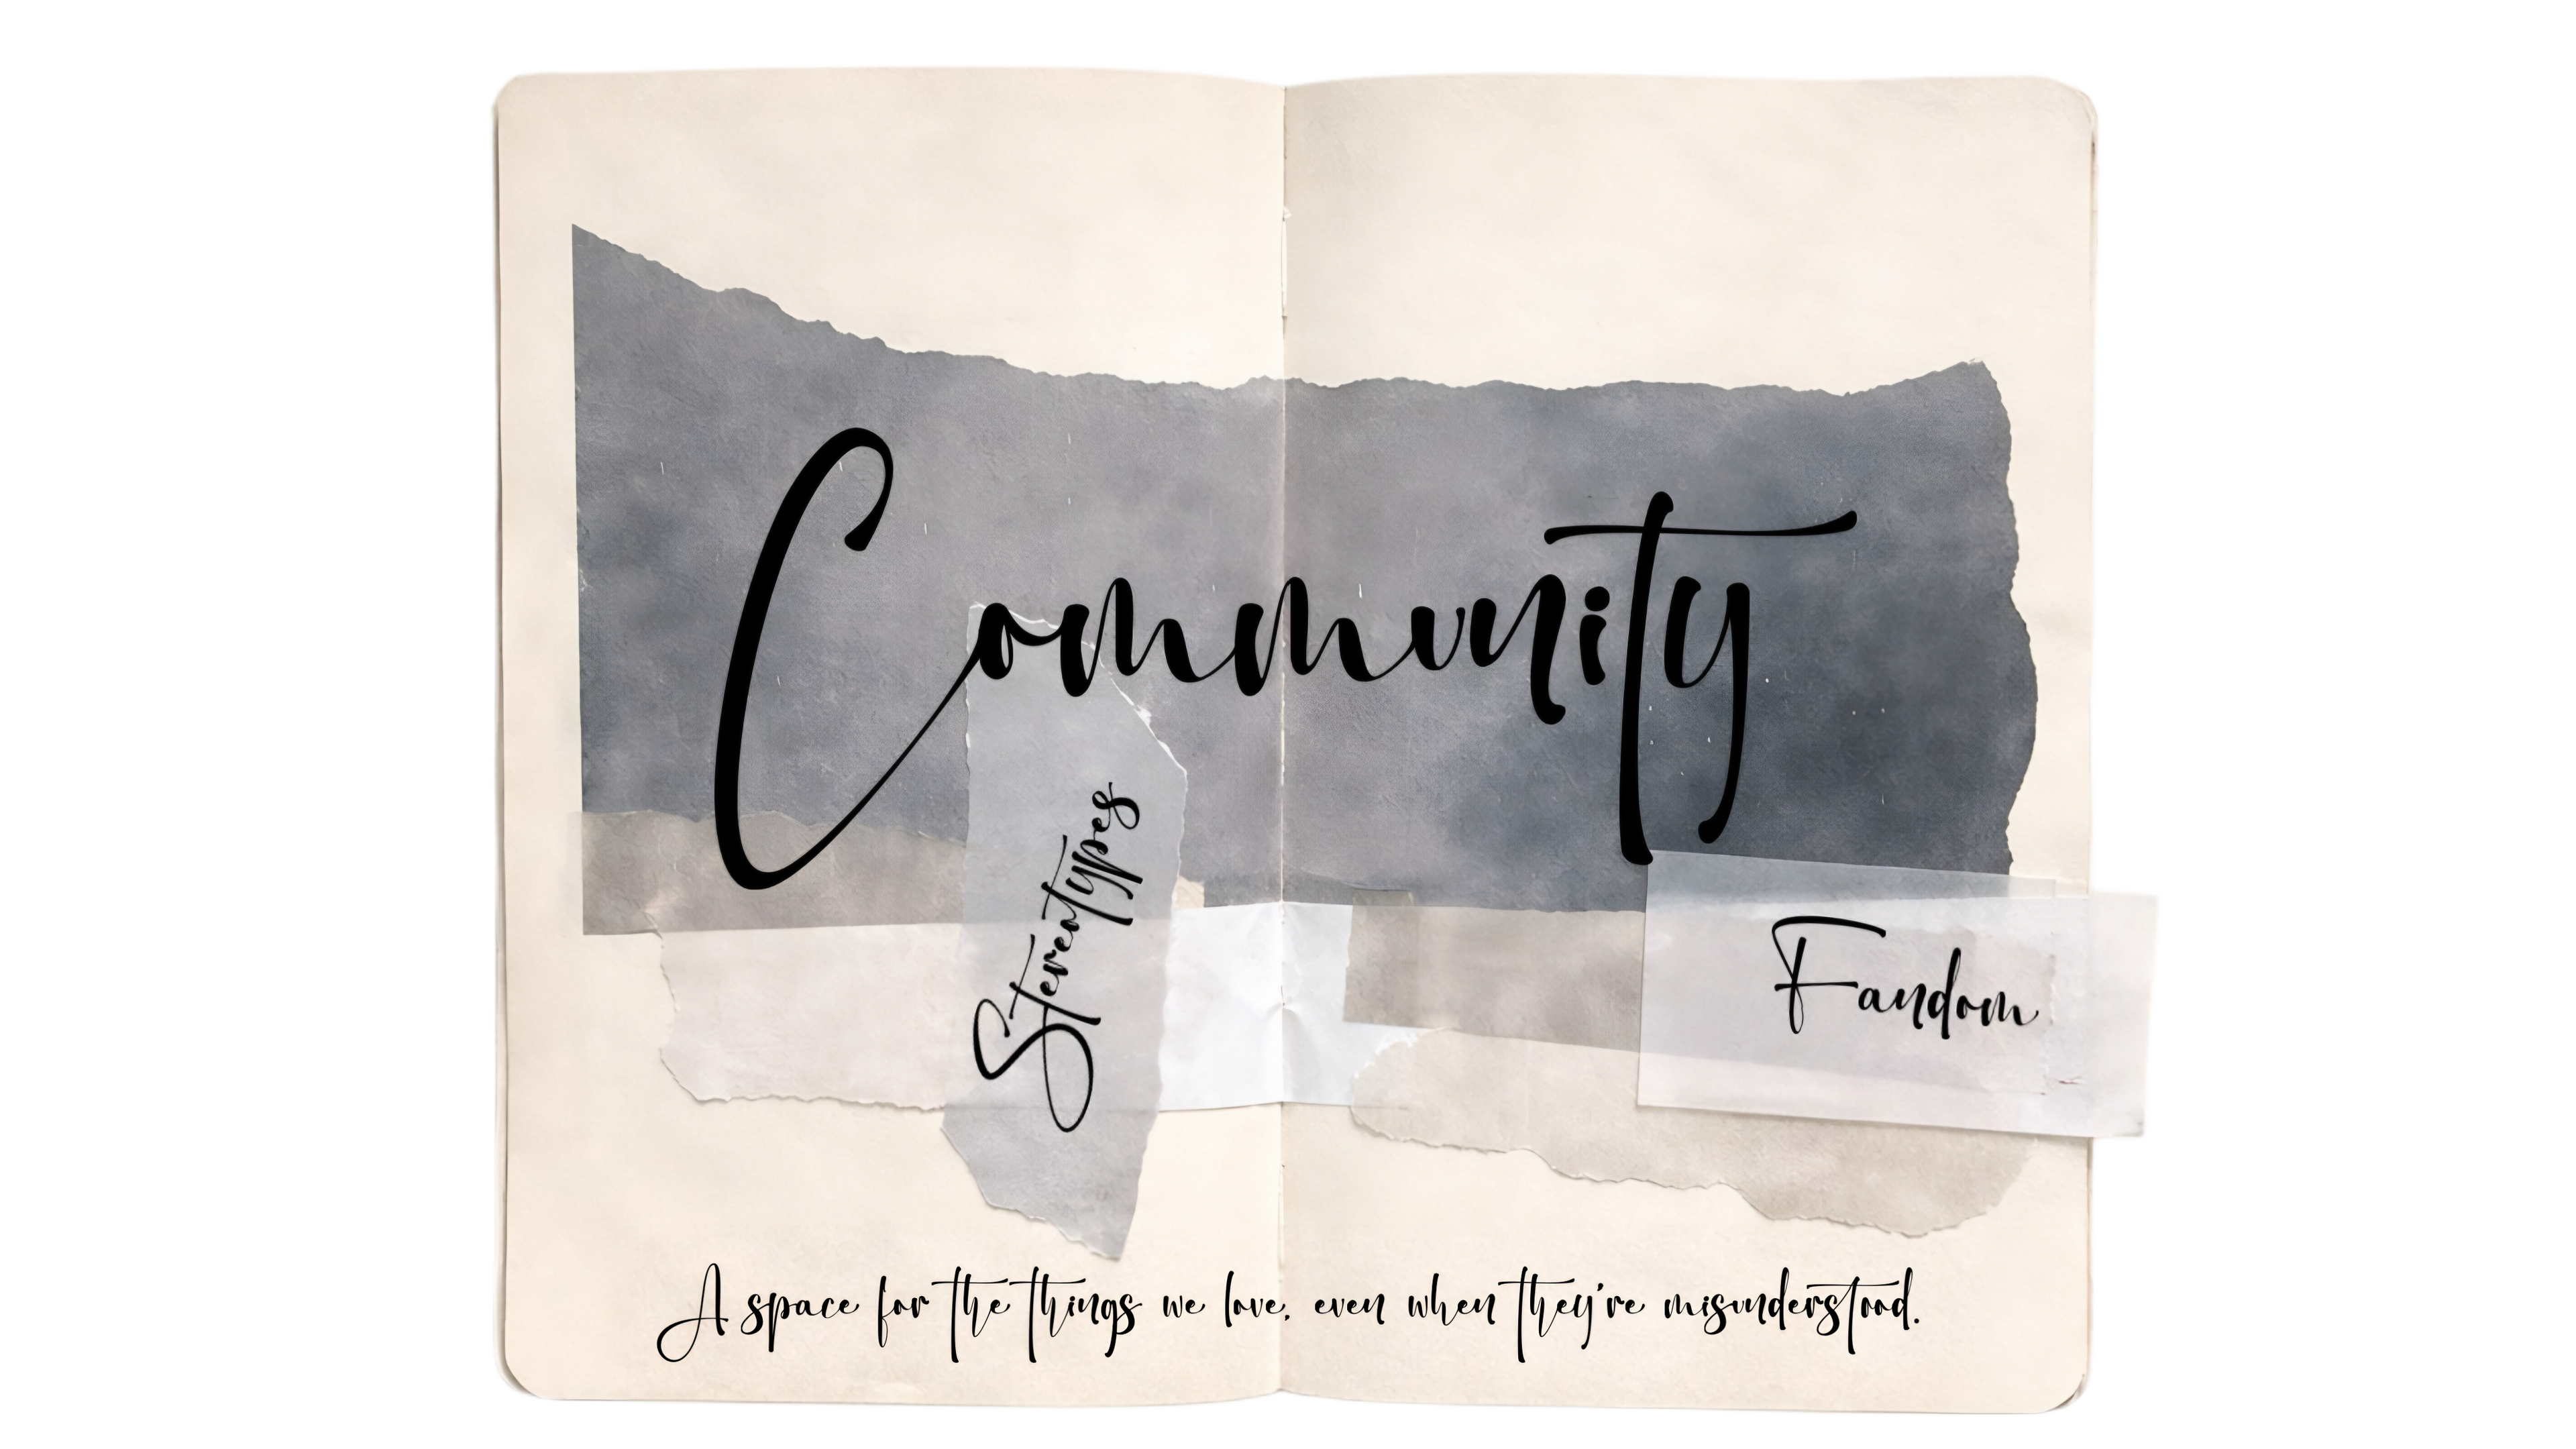 Community
Stereotypes
Fandom
A space for the things we love, even when they're misunderstood.